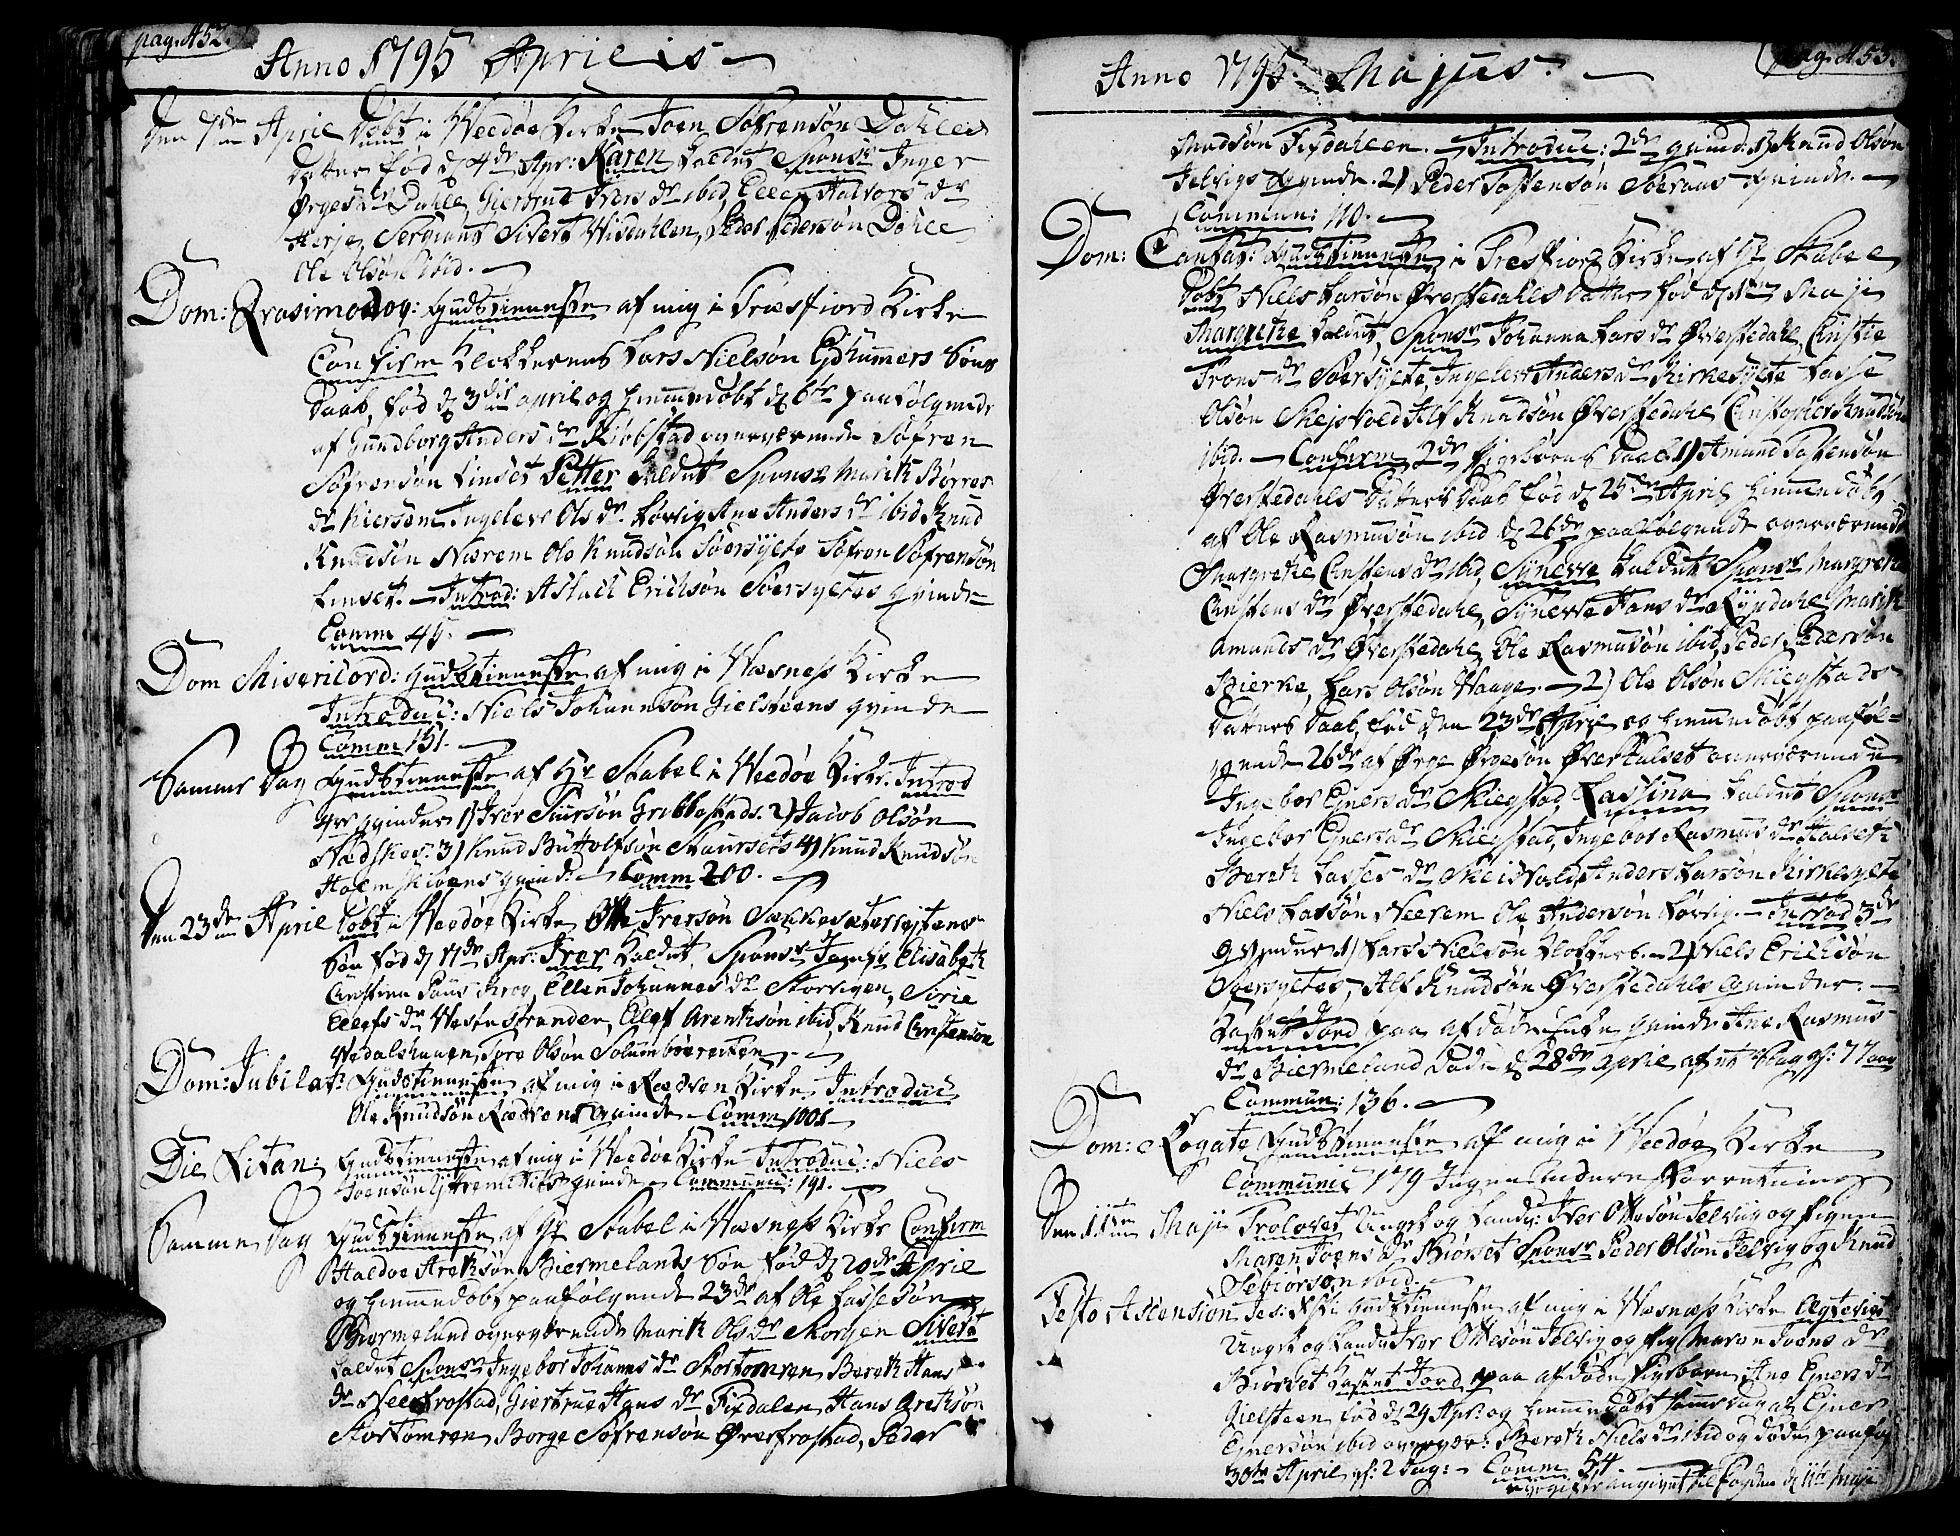 pag. 452.
Anno 1795 Aprilis
Den 7de April Døbt i Weedøe Kirke Joen Søfrensøn Dahles
datter fød d 4de Apr: Karen kaldet Spons Inger
Ørges dr Dahle, Giertrue Ivers dr ibid, Ellen Halvors dr
Herje, Sergiant Sivert Wisdahlen, Peder Pedersøn Dahle
Ole Olsøn ibid.
Dom: Qvasimodog: Gudstienneste af mig i Træsfiord Kirke
Confirm Klokkerens Lars Nielsøn Eidhammers Søns
Daab, fød d 3die april og hiemmedøbt d 6te paafølgende
af Gundborg Anders dr Kiøbstad overværende Søfren
Søfrensøn Linset Petter kaldet Spons Marith Børres
dr Kiersem Ingelev Ols dr Løvig Ane Anders dr ibid Knud
Knudsøn Nærem Ole Knudsøn Søersylte Søfren Søfrensøn
Linset. Introd: Aslach Erichsøn Søersyltes qvinde
Comm 45.
Dom Misericord: Gudstienneste af mig i Wæsnæss Kirke
Introduc: Niels Johannsøn Gielsteens qvinde
Comm 151.
Samme Dag Gudstienneste af Hr Stabel i Weedøe Kirke. Introd
4re qvinder 1) Iver Siursøn Gribbestads. 2) Jacob Olsøn
Nædskes: 3) Knud Buttolfsøn Maursets 4) Knud Knudsøn
Holmskivens qvind: Comm 200.
Den 23de April Døbt i Weedøe Kirke Otte Iversøn Sækkesætersejtens
Søn fød d 17de Apr: Iver kaldet. Spons Jomfr Elisabeth
Christina Paus Krog, Ellen Johannes dr Storvigen, Sirie
Ellefs dr Westestranden, Ellef Arentsøn ibid, Knud Christensøn
Wedalshaunen, Tore Olsøn Solumbøereiten
Dom: Jubilat: Gudstienneste af mig i Rødven Kirke Introduc
Ole Knudsøn Rødvens qvinde Comm 100.
Die Litan: Gudstienneste af mig i Weedøe Kirke Introduc: Niels
Joensøn qvinde Communic: 191.
Samme Dag Gudstienneste af Hr Stabel i Wæsnæss Kirke Confirm
Haldoe Arethsøn Biermelands Søn fød d 20de April
og hiemmedøbt paafølgende 23de af Ole Lassesøn
Biermeland overværende Marith Ols dr Morgen Sivert
kaldet Spons Ingebor Johanns dr Stortomren Bereth Hans
dr Neerfrostad, Giertrue Hans dr Fixdalen Hans Arethsøn
Stortomren Borge Søfrensøn Øverfrostad, Peder
pag. 453.
Anno 1795. Majus.
Knudsøn Fixdahlen. Introduc: 2de qvind: 1) Knud Olsøn
Jelvigs qvinde. 2) Peder Tostensøn Søeraas qvinde.
Commun: 110.
Dom: Cantat: Gudstienneste i Tresfiord Kirke af Hr Stabel
Døbt Niels Larsøn Øverstedahls datter fød d 1ste Maji
Margrethe kaldet, Spons Johanna Lars dr Øverstedahl, Cirstie
Trons dr Søersylte, Ingelev Anders dr Kirkesylte Lasse
Olsøn Mejsvold Alf Knudsøn Øverstedahl Christopher Knudsøn
ibid. Confirm 2de Pigebørns Daab. 1) Amund Tostensøn
Øverstedahls datters Daab fød d 25de April hiemmedøbt
af Ole Rasmusøn ibid d 26de paafølgende overværende
Margrethe Cristens dr ibid, Synneve kaldet Spons Margrethe
Cristens dr Øverstedahl, Synneve Hans dr Rypdahl, Marith
Amunds dr Øverstedahl, Ole Rasmusøn ibid, Peder Pedersøn
Bierke, Lars Olsøn Haage. 2) Ole Olsøn Skiegstads
Datters Daab, fød den 23de April og hiemmedøbt paaføl=
gende 26de af Ørge Ørgesøn Øverhalset overværende
Ingebor Ejners dr Skiegstad, Rassina kaldet Spons
Ingebor Ejners dr Skiegstad, Ingebor Rasmus dr Halseth
Bereth Lasses dr Meisvold, Anders Larsøn Kirkesylte
Niels Larsøn Neerem Ole Andersøn Løvig. Introd 3de
qvinder 1) Lars Nielsøn Klokkers. 2) Niels Erichsøn
Søersyltes, Alf Knudsøn Øverstedahls qvinder.
Kastet Jord paa afdøde Enke qvinde Ane Rasmus
dr Biermeland døde d 28de april af et Slag gl: 77 aar
Commun: 136.
Dom: Rogate Gudstienneste af mig i Weedøe Kirke
Communic 179 Ingen andere Forretninger
Den 11te Maji Trolovet Ungk og Landv: Iver Ottesøn Jelvig og Pigen
Maren Joens dr Biørset Spons Peder Olsøn Jelvig og Knud
Tebiørsen ibid.
Festo Ascension Jes: Xsti Gudstienneste af mig i Wæsnæss Kirke Ægteviet
Ungk og Landv Iver Ottesøn Jelvig og Pig: Maren Joens dr
Biørset Kastet Jord paa afdøde Pigbarn Ane Ejners dr
Gielsteen fød d 29 Apr: og hiemmedøbt samme dag af Ejner
Ejnersøn ibid overvær: Bereth Niels dr ibid og døde paaføl
30te April gl: 2 Dag: Comm 54
angivet til Fogden d 11te Maji